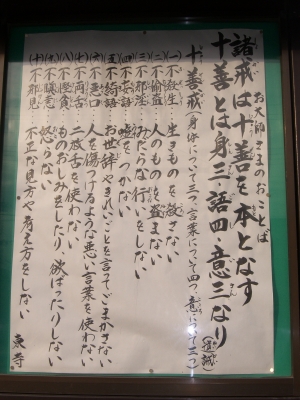 お大師さまのおことば
諸戒は十善を本となす
十善とは身三・語四・意三なり（遺誡）
十善戒（身体について三つ、言葉について四つ、意について三つ）
（一）不殺生……生きものを殺さない
（二）不偸盗……人のものを盗まない
（三）不邪淫……みだらな行いをしない
（四）不妄語……嘘をつかない
（五）不綺語……お世辞やきれいごとを言てごまかさない
（六）不悪口……人を傷つけるような悪い言葉を使わない
（七）不両舌……二枚舌を使わない
（八）不慳貪……ものおしみをしたり、欲ばったりしない
（九）不瞋恚……怒らない
（十）不邪見……不正な見方や考え方をしない
東寺